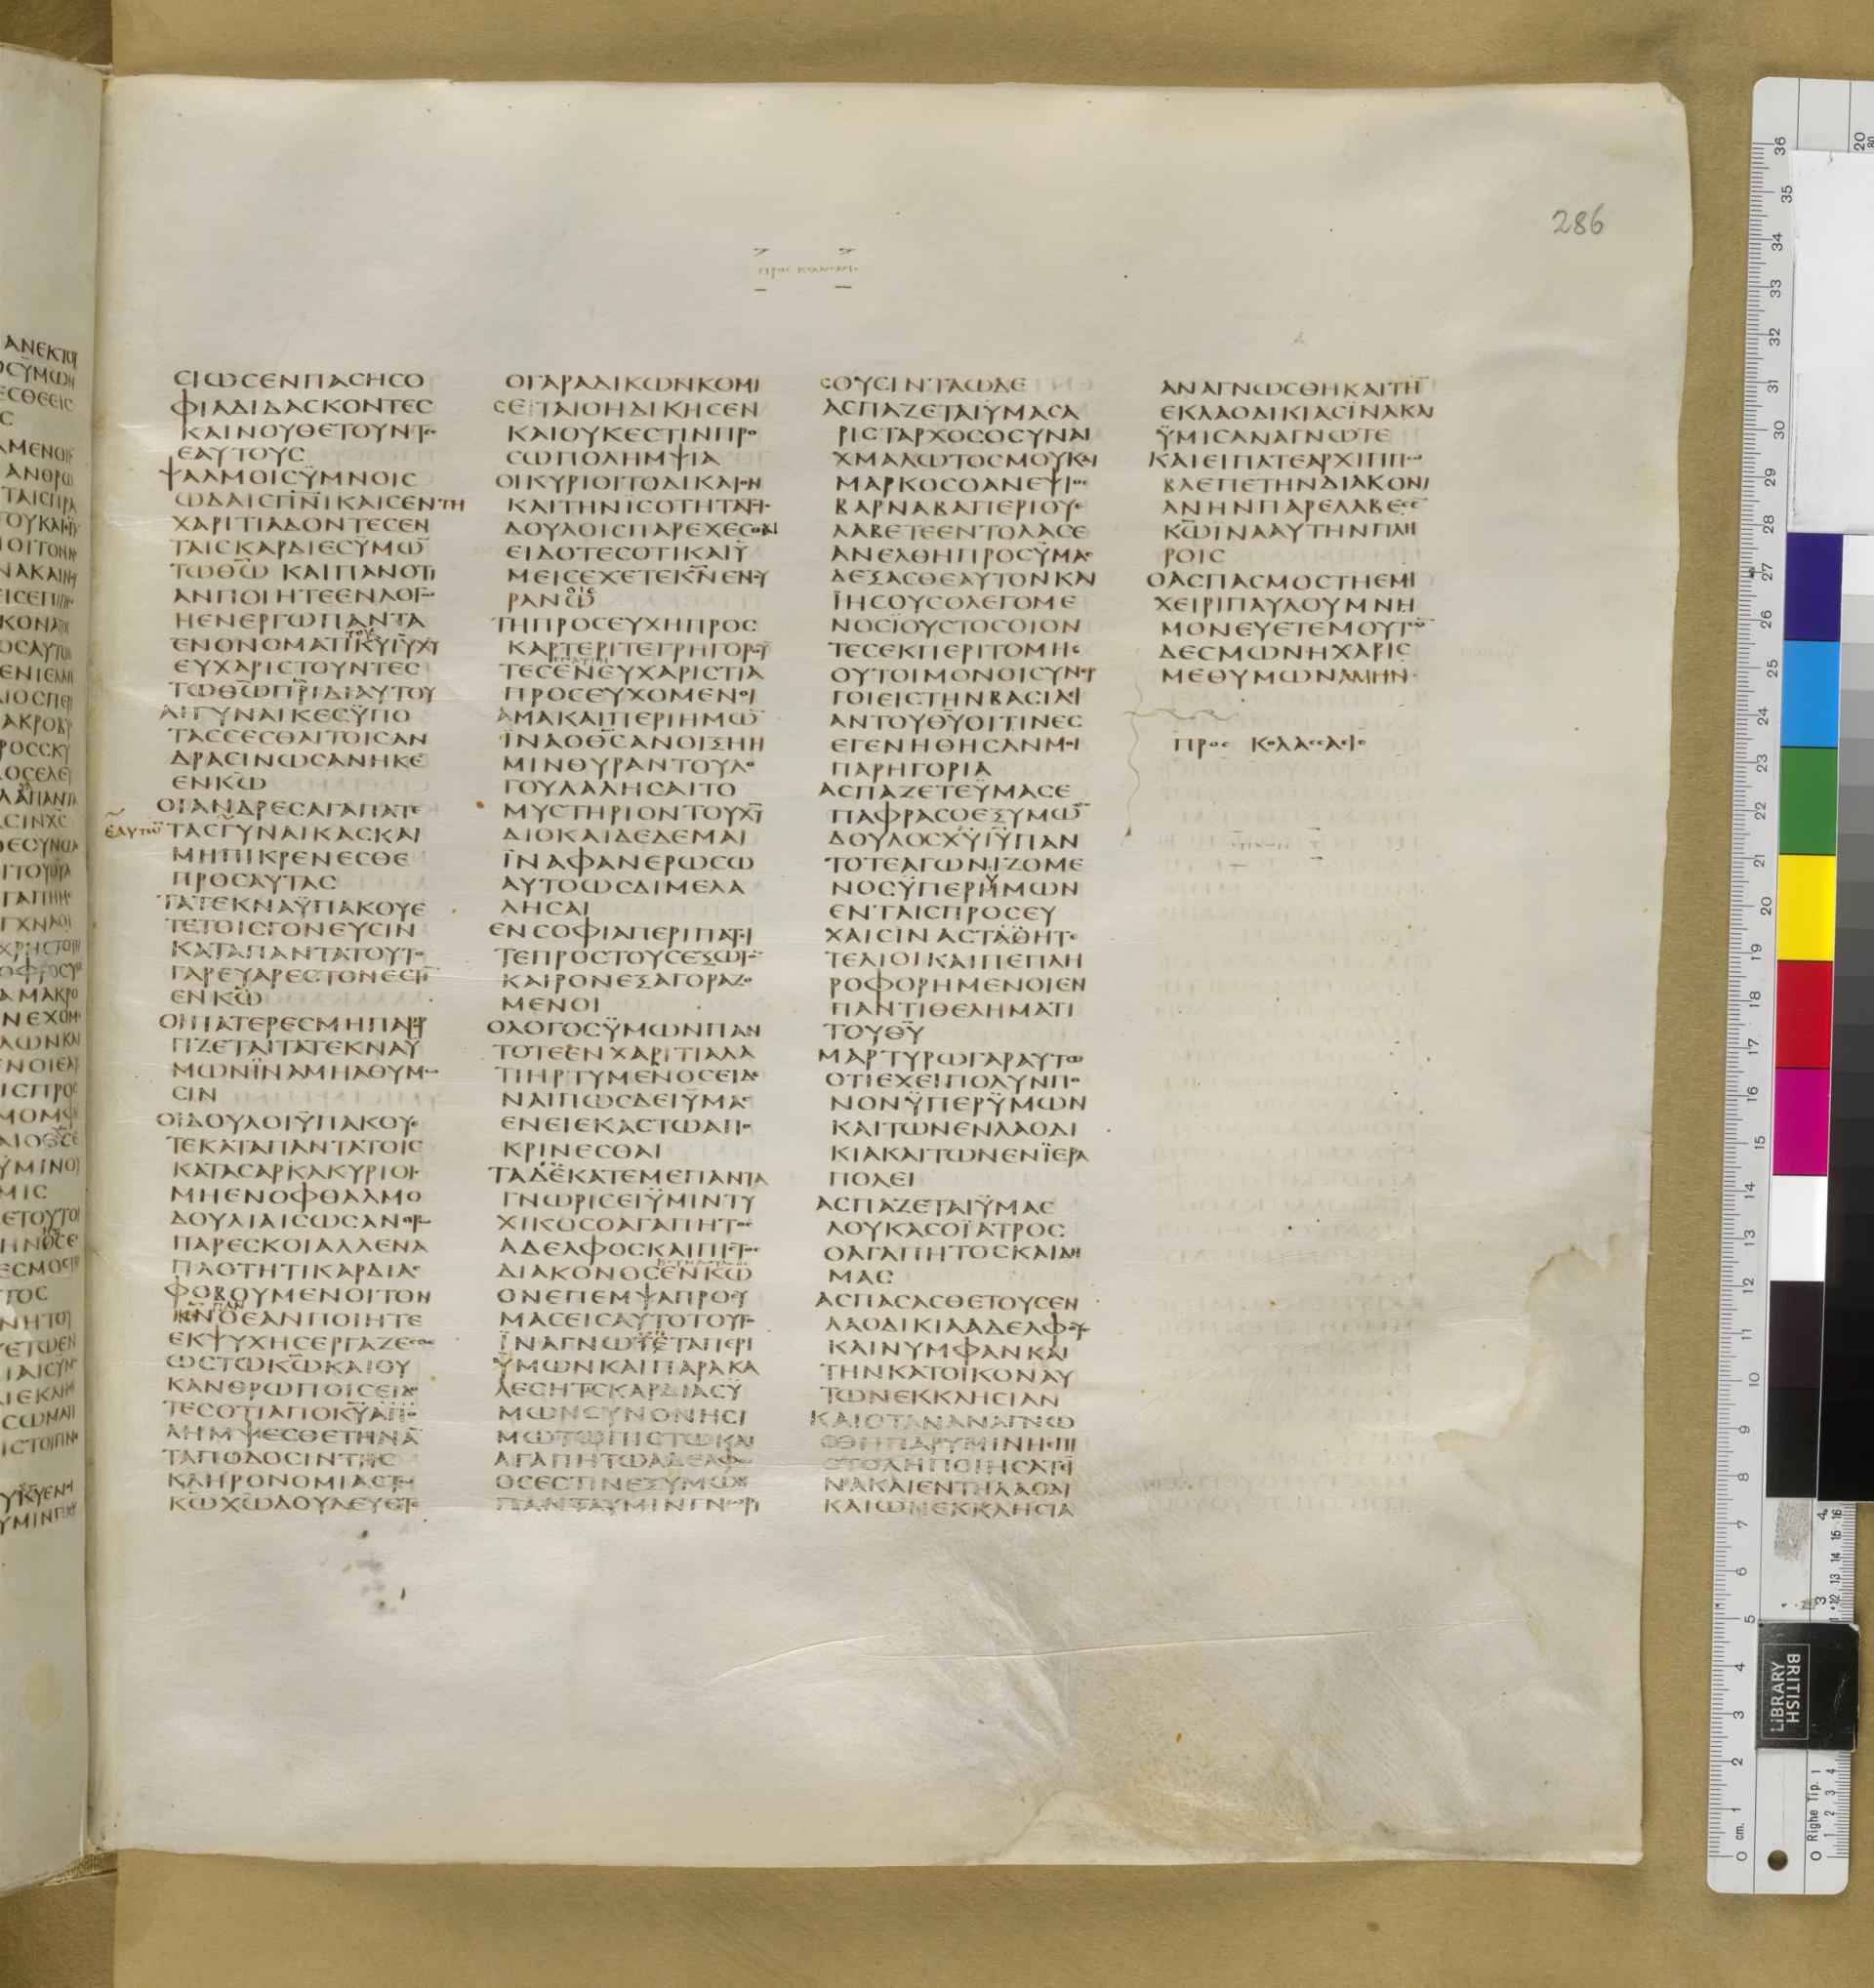 286
Προς Κολασσαι
ϹΙΩϹΕΝΠΑϹΗϹΟ
ΦΙΑΔΙΔΑϹΚΟΝΤΕϹ
ΚΑΙΝΟΥΘΕΤΟΥΝΤΕϹ
ΕΑΥΤΟΥϹ
ΨΑΛΜΟΙϹΫΜΝΟΙϹ
ΩΔΑΙϹΠΝΙΚΑΙϹΕΝΤΗ
ΧΑΡΙΤΙΑΔΟΝΤΕϹΕΝ
ΤΑΙϹΚΑΡΔΙΕϹΫΜΩ̅
ΤΩΘ̅Ω̅ ΚΑΙΠΑΝΟΤΙ
ΑΝΠΟΙΗΤΕΕΝΛΟΓΩ
ΗΕΝΕΡΓΩΠΑΝΤΑ
ΕΝΟΝΟΜΑΤΙΚ̅Υ̅Ι̅Υ̅Χ̅Υ̅
ΕΥΧΑΡΙϹΤΟΥΝΤΕϹ
ΤΩΘ̅Ω̅Π̅Ρ̅ΙΔΙΑΥΤΟΥ
ΑΙΓΥΝΑΙΚΕϹΫΠΟ
ΤΑϹϹΕϹΘΑΙΤΟΙϹΑΝ
ΔΡΑϹΙΝΩϹΑΝΗΚΕ
ΕΝΚ̅Ω̅
ΟΙΑΝΔΡΕϹΑΓΑΠΑΤΕ
ΤΑϹΓΥΝΑΙΚΑϹΚΑΙ
ΜΗΠΙΚΡΕΝΕϹΘΕ
ΠΡΟϹΑΥΤΑϹ
ΤΑΤΕΚΝΑΫΠΑΚΟΥΕ
ΤΕΤΟΙϹΓΟΝΕΥϹΙΝ
ΚΑΤΑΠΑΝΤΑΤΟΥΤΟ
ΓΑΡΕΥΑΡΕϹΤΟΝΕϹΤΙ̅
ΕΝΚ̅Ω̅
ΟΙΠΑΤΕΡΕϹΜΗΠΑΡΟΡ
ΓΙΖΕΤΑΙΤΑΤΕΚΝΑΫ
ΜΩΝΪΝΑΜΗΑΘΥΜΩ
ϹΙΝ
ΟΙΔΟΥΛΟΙΫΠΑΚΟΥΕ
ΤΕΚΑΤΑΠΑΝΤΑΤΟΙϹ
ΚΑΤΑϹΑΡΚΑΚΥΡΙΟΙϹ
ΜΗΕΝΟΦΘΑΛΜΟ
ΔΟΥΛΙΑΙϹΩϹΑΝΘΡΩ
ΠΑΡΕϹΚΟΙΑΛΛΕΝΑ
ΠΛΟΤΗΤΙΚΑΡΔΙΑϹ
ΦΟΒΟΥΜΕΝΟΙΤΟΝ
Κ̅Ν̅ΟΕΑΝΠΟΙΗΤΕ
ΕΚΨΥΧΗϹΕΡΓΑΖΕϹΘΕ
ΩϹΤΩΚ̅Ω̅ΚΑΙΟΥ
ΚΑΝΘΡΩΠΟΙϹΕΙΔΟ
ΤΕϹΟΤΙΑΠΟΚ̅Υ̅ΑΠΟ
ΛΗΜΨΕϹΘΕΤΗΝΑ̅
ΤΑΠΟΔΟϹΙΝΤΗϹ
ΚΛΗΡΟΝΟΜΙΑϹΤΩ
Κ̅Ω̅Χ̅Ω̅ΔΟΥΛΕΥΕΤΕ
ΟΓΑΡΑΔΙΚΩΝΚΟΜΙ
ϹΕΤΑΙΟΗΔΙΚΗϹΕΝ
ΚΑΙΟΥΚΕϹΤΙΝΠΡΟ
ϹΩΠΟΛΗΜΨΙΑ
ΟΙΚΥΡΙΟΙΤΟΔΙΚΑΙΟΝ
ΚΑΙΤΗΝΪϹΟΤΗΤΑΤΟΙϹ
ΔΟΥΛΟΙϹΠΑΡΕΧΕϹΘΑΙ
ΕΙΔΟΤΕϹΟΤΙΚΑΙΫ
ΜΕΙϹΕΧΕΤΕΚ̅Ν̅ΕΝΟΥ
ΡΑΝΩ
ΤΗΠΡΟϹΕΥΧΗΠΡΟϹ
ΚΑΡΤΕΡΙΤΕΓΡΗΓΟΡΟΥ
ΤΕϹΕΝΕΥΧΑΡΙϹΤΙΑ
ΠΡΟϹΕΥΧΟΜΕΝΟΙ
ΑΜΑΚΑΙΠΕΡΙΗΜΩ̅
ΪΝΑΟΘ̅Ϲ̅ΑΝΟΙΞΗΗ
ΜΙΝΘΥΡΑΝΤΟΥΛΟ
ΓΟΥΛΑΛΗϹΑΙΤΟ
ΜΥϹΤΗΡΙΟΝΤΟΥΧ̅Υ̅
ΔΙΟΚΑΙΔΕΔΕΜΑΙ
ΪΝΑΦΑΝΕΡΩϹΩ
ΑΥΤΟΩϹΔΙΜΕΛΑ
ΛΗϹΑΙ
ΕΝϹΟΦΙΑΠΕΡΙΠΑΤΙ
ΤΕΠΡΟϹΤΟΥϹΕΞΩΤΟ̅
ΚΑΙΡΟΝΕΞΑΓΟΡΑΖΟ
ΜΕΝΟΙ
ΟΛΟΓΟϹΫΜΩΝΠΑΝ
ΤΟΤΕΕΝΧΑΡΙΤΙΑΛΑ
ΤΙΗΡΤΥΜΕΝΟϹΕΙΔΕ
ΝΑΙΠΩϹΔΕΙΫΜΑϹ
ΕΝΕΙΕΚΑϹΤΩΑΠΟ
ΚΡΙΝΕϹΘΑΙ
ΤΑΔΕΚΑΤΕΜΕΠΑΝΤΑ
ΓΝΩΡΙϹΕΙΫΜΙΝΤΥ
ΧΙΚΟϹΟΑΓΑΠΗΤΟϹ
ΑΔΕΛΦΟϹΚΑΙΠΙϹΤΟϹ
ΔΙΑΚΟΝΟϹΕΝΚ̅Ω̅
ΟΝΕΠΕΜΨΑΠΡΟϹΥ
ΜΑϹΕΙϹΑΥΤΟΤΟΥΤΟ
ΪΝΑΓΝΩΤΕΤΑΠΕΡΙ
ΫΜΩΝΚΑΙΠΑΡΑΚΑ
ΛΕϹΗΤϹΚΑΡΔΙΑϹΫ
ΜΩΝϹΥΝΟΝΗϹΙ
ΜΩΤΩΠΙϹΤΩΚΑΙ
ΑΓΑΠΗΤΩΑΔΕΛΦΩ
ΟϹΕϹΤΙΝΕΞΥΜΩΝ
ΠΑΝΤΑΥΜΙΝΓΝΩΡΙ
ϹΟΥϹΙΝΤΑΩΔΕ
ΑϹΠΑΖΕΤΑΙΫΜΑϹΑ
ΡΙϹΤΑΡΧΟϹΟϹΥΝΑΙ
ΧΜΑΛΩΤΟϹΜΟΥΚΑΙ
ΜΑΡΚΟϹΟΑΝΕΨΙΟϹ
ΒΑΡΝΑΒΑΠΕΡΙΟΥΕ
ΛΑΒΕΤΕΕΝΤΟΛΑϹΕ
ΑΝΕΛΘΗΠΡΟϹΫΜΑϹ
ΔΕΞΑϹΘΕΑΥΤΟΝΚΑΙ
ΪΗϹΟΥϹΟΛΕΓΟΜΕ
ΝΟϹΪΟΥϹΤΟϹΟΙΟΝ
ΤΕϹΕΚΠΕΡΙΤΟΜΗϹ
ΟΥΤΟΙΜΟΝΟΙϹΥΝΕΡ
ΓΟΙΕΙϹΤΗΝΒΑϹΙΛΕΙ
ΑΝΤΟΥΘ̅Υ̅ΟΙΤΙΝΕϹ
ΕΓΕΝΗΘΗϹΑΝΜΟΙ
ΠΑΡΗΓΟΡΙΑ
ΑϹΠΑΖΕΤΕΫΜΑϹΕ
ΠΑΦΡΑϹΟΕΞΥΜΩ̅
ΔΟΥΛΟϹΧ̅Υ̅Ι̅Υ̅ΠΑΝ
ΤΟΤΕΑΓΩΝΙΖΟΜΕ
ΝΟϹΫΠΕΡΗΜΩΝ
ΕΝΤΑΙϹΠΡΟϹΕΥ
ΧΑΙϹΙΝΑϹΤΑΘΗΤΕ
ΤΕΛΙΟΙΚΑΙΠΕΠΛΗ
ΡΟΦΟΡΗΜΕΝΟΙΕΝ
ΠΑΝΤΙΘΕΛΗΜΑΤΙ
ΤΟΥΘ̅Υ̅
ΜΑΡΤΥΡΩΓΑΡΑΥΤΩ
ΟΤΙΕΧΕΙΠΟΛΥΝΠΟ
ΝΟΝΫΠΕΡΫΜΩΝ
ΚΑΙΤΩΝΕΝΛΑΟΔΙ
ΚΙΑΚΑΙΤΩΝΕΝΪΕΡΑ
ΠΟΛΕΙ
ΑϹΠΑΖΕΤΑΙΫΜΑϹ
ΛΟΥΚΑϹΟΪΑΤΡΟϹ
ΟΑΓΑΠΗΤΟϹΚΑΙΔΗ
ΜΑϹ
ΑϹΠΑϹΑϹΘΕΤΟΥϹΕΝ
ΛΑΟΔΙΚΙΑΑΔΕΛΦΟΥϹ
ΚΑΙΝΥΜΦΑΝΚΑΙ
ΤΗΝΚΑΤΟΪΚΟΝΑΥ
ΤΩΝΕΚΚΛΗϹΙΑΝ
ΚΑΙΟΤΑΝΑΝΑΓΝΩ
ϹΘΗΠΑΡΥΜΙΝΗΕΠΙ
ϹΤΟΛΗΠΟΙΗϹΑΤΕΪ
ΝΑΚΑΙΕΝΤΗΛΑΟΔΙ
ΚΑΙΩΝΕΚΚΛΗϹΙΑ
ΑΝΑΓΝΩϹΘΗΚΑΙΤΗ̅
ΕΚΛΑΟΔΙΚΙΑϹΪΝΑΚΑΙ
ΫΜΙϹΑΝΑΓΝΩΤΕ
ΚΑΙΕΙΠΑΤΕΑΡΧΙΠΠΩ
ΒΛΕΠΕΤΗΝΔΙΑΚΟΝΙ
ΑΝΗΝΠΑΡΕΛΑΒΕϹΕ
Κ̅Ω̅ΪΝΑΑΥΤΗΝΠΛΗ
ΡΟΙϹ
ΟΑϹΠΑϹΜΟϹΤΗΕΜΗ
ΧΕΙΡΙΠΑΥΛΟΥΜΝΗ
ΜΟΝΕΥΕΤΕΜΟΥΤΩ̅
ΔΕϹΜΩΝΗΧΑΡΙϹ
ΜΕΘΥΜΩΝΑΜΗΝ
Προς Κολασσαεις
BRITISH
LIBRARY